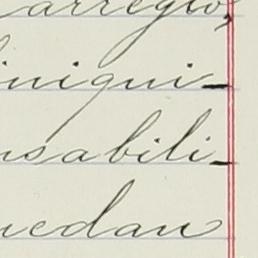 arreglo,
iniqui-
nsabili-
uedan